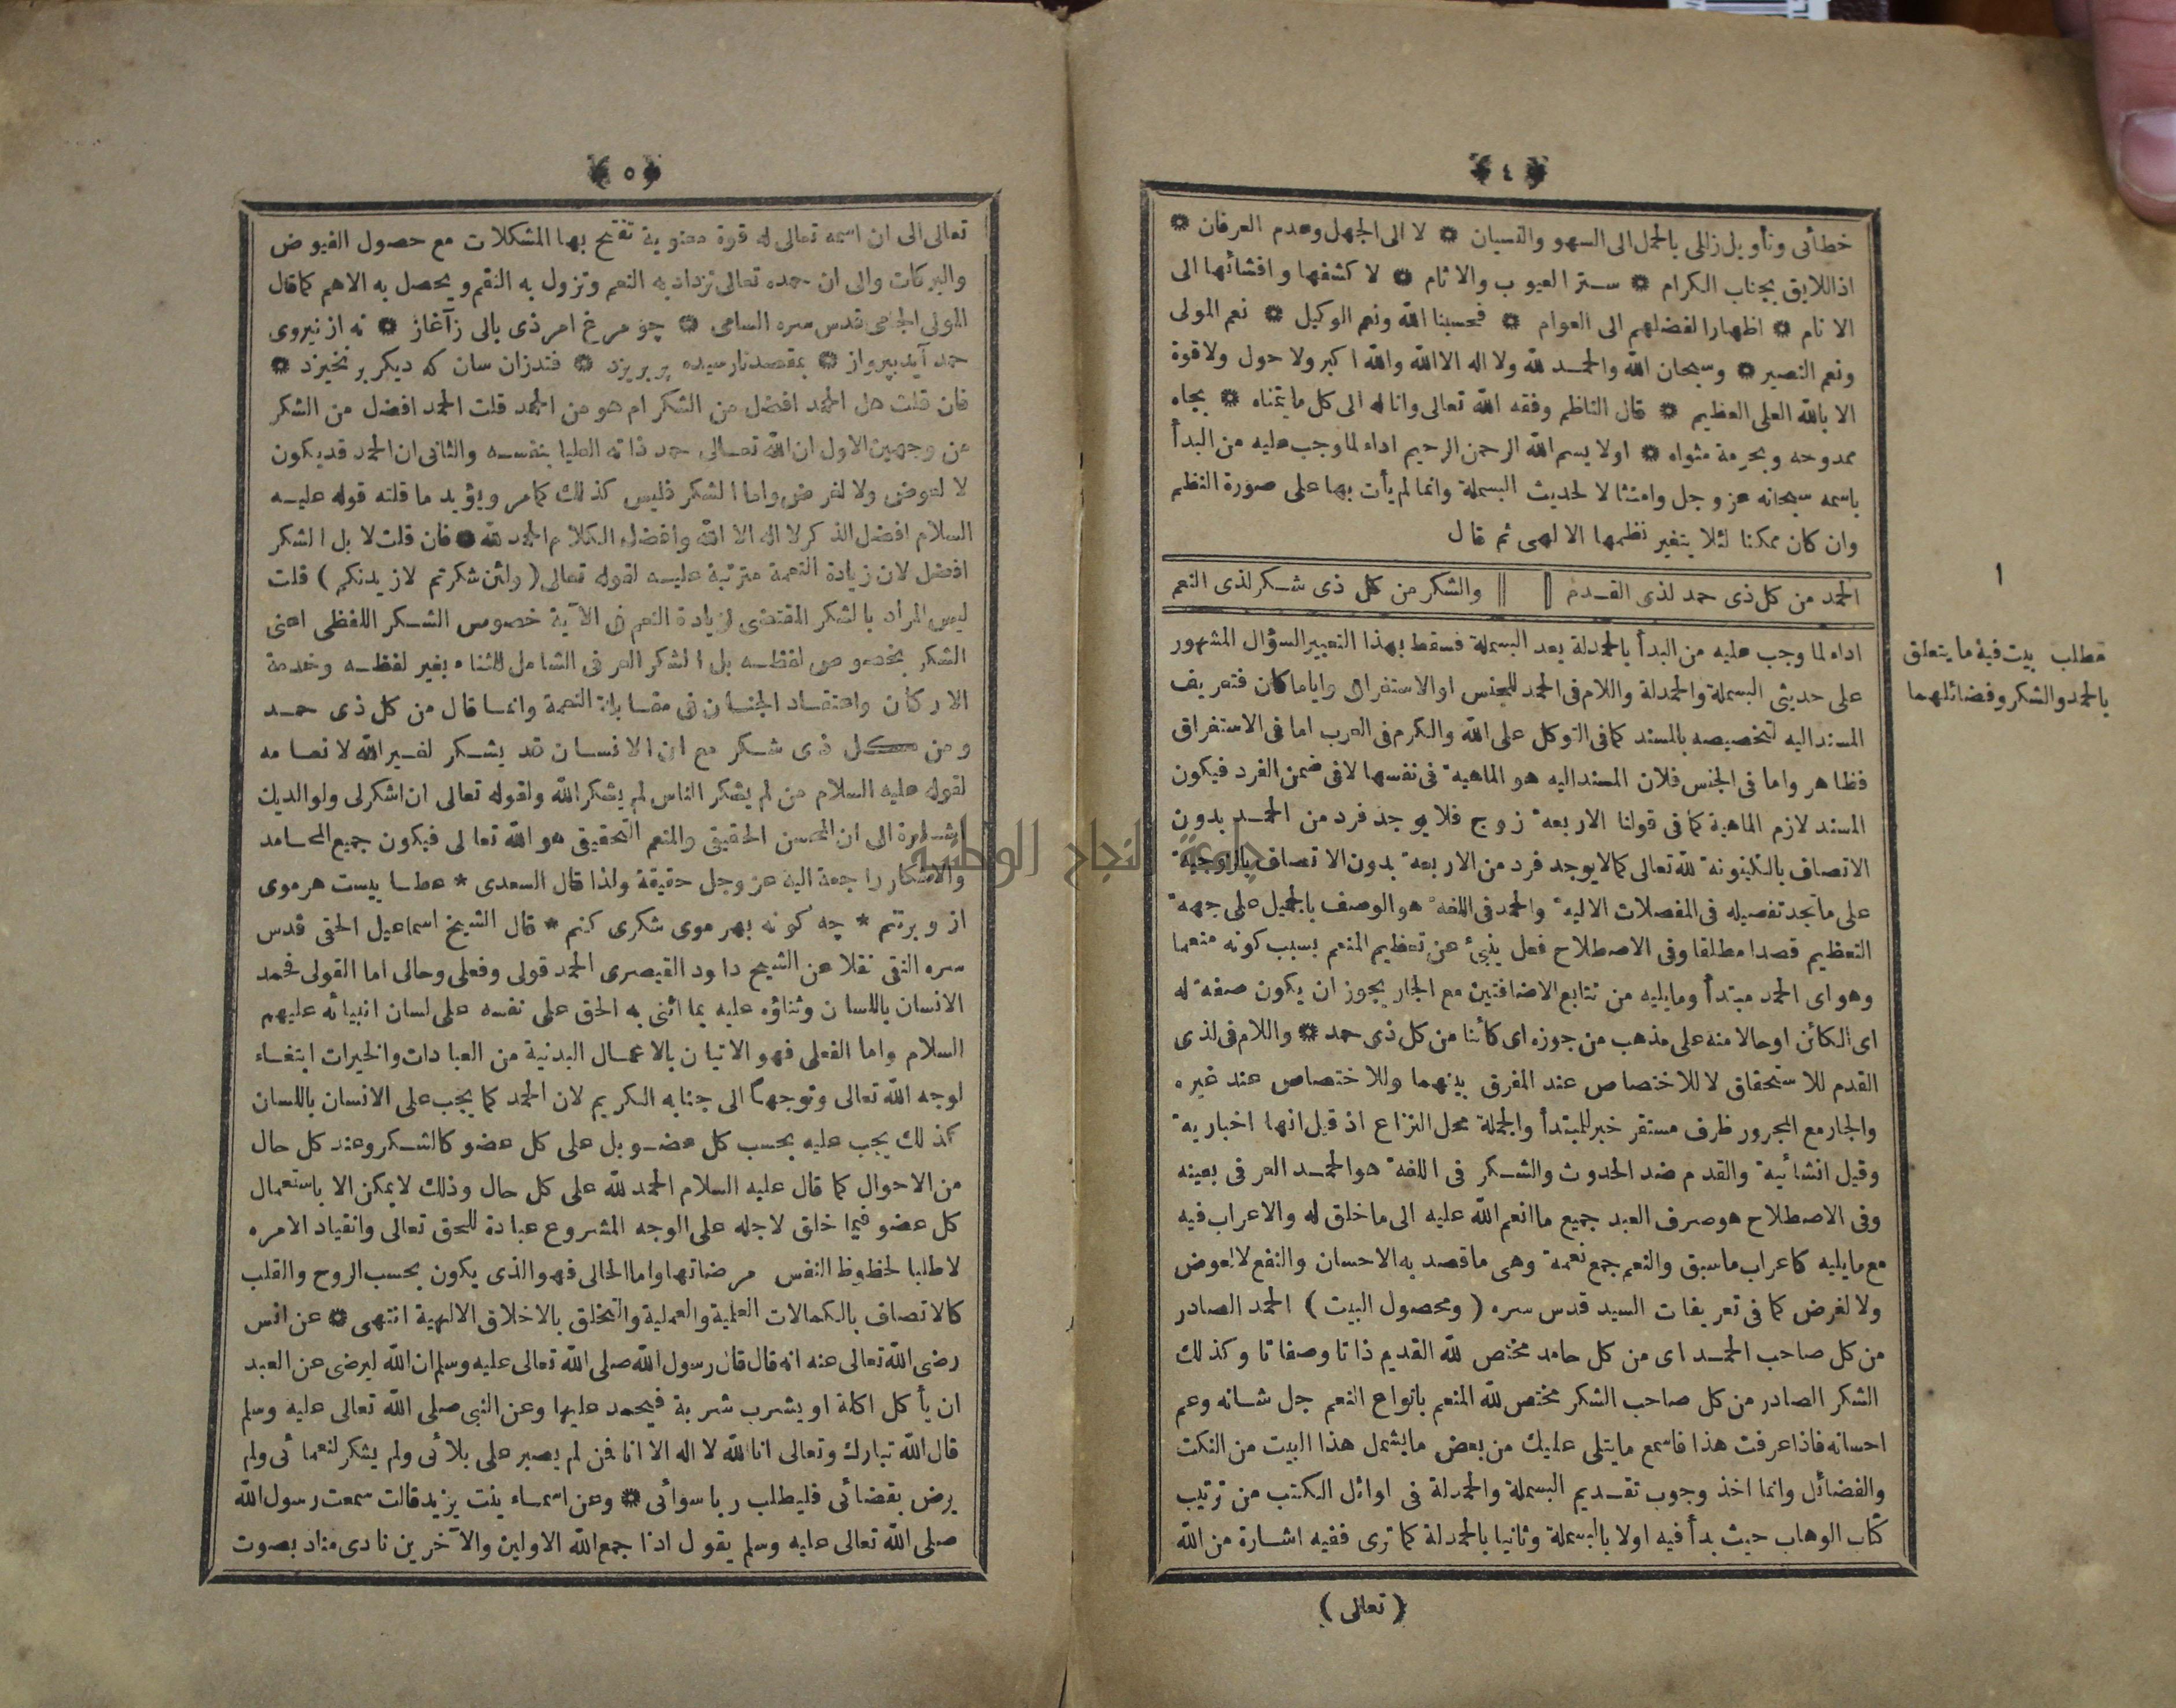 ﴿ ٤ ﴾
خطائى وتأويل زللى بالحمل الى السهو والنسيان ۞ لا الى الجهل وعدم العرفان ۞
اذ اللايق بجناب الكرام ۞ ستر العيوب والاثام ۞ لا كشفها وافشائها الى
الانام ۞ اظهارا لفضلهم الى العوام ۞ فحسبنا الله ونعم الوكيل ۞ نعم المولى
ونعم النصير ۞ وسبحان الله والحمد لله ولا اله الا الله والله اكبر ولا حول ولا قوة
الا بالله العلى العظيم ۞ قال الناظم وفقه الله تعالى واناله الى كل ما يتمناه ۞ بجاه
ممدوحه وبحرمة مثواه ۞ اولا بسم الله الرحمن الرحيم اداء لما وجب عليه من البدأ
باسمه سبحانه عز وجل وامتثالا لحديث البسملة وانما لم يأت بها على صورة النظم
وان كان ممكنا لئلا يتغير نظمها الالهى ثم قال
١
الحمد من كل ذى حمد لذى القدم ‖ والشكر من كل ذى شكر لذى النعم
مطلب بيت فيه ما يتعلق
بالحمد والشكر وفضائلهما
اداء لما وجب عليه من البدأ بالحمدلة بعد البسملة فسقط بهذا التعبير السؤال المشهور
على حديثى البسملة والحمدلة واللام فى الحمد للجنس او الاستغراق واياما كان فتعريف
المسند اليه لتخصيصه بالمسند كما فى التوكل على الله والكرم فى العرب اما فى الاستغراق
فظاهر واما فى الجنس فلان المسند اليه هو الماهية فى نفسها لا فى ضمن الفرد فيكون
المسند لازم الماهية كما فى قولنا الاربعة زوج فلا يوجد فرد من الحمد بدون
الاتصاف بالكينونة لله تعالى كما لا يوجد فرد من الاربعة بدون الاتصاف بالزوجية
على ما تجد تفصيله فى المفصلات الالية والحمد فى اللغة هو الوصف بالجميل على جهة
التعظيم قصدا مطلقا وفى الاصطلاح فعل ينبئ عن تعظيم المنعم بسبب كونه منعما
وهو اى الحمد مبتدأ وما يليه من تتابع الاضافتين مع الجار يجوز ان يكون صفة له
اى الكائن او حالا منه على مذهب من جوزه اى كائنا من كل ذى حمد ۞ واللام فى لذى
القدم للاستحقاق لا للاختصاص عند المفرق بينهما وللاختصاص عند غيره
والجار مع المجرور ظرف مستقر خبر للمبتدأ والجملة محل النزاع اذ قيل انها اخبارية
وقيل انشائية والقدم ضد الحدوث والشكر فى اللغة هو الحمد العرفى بعينه
وفى الاصطلاح هو صرف العبد جميع ما انعم الله عليه الى ما خلق له والاعراب فيه
مع ما يليه كاعراب ما سبق والنعم جمع نعمة وهى ما قصد به الاحسان والنفع لا لعوض
ولا لغرض كما فى تعريفات السيد قدس سره ( ومحصول البيت ) الحمد الصادر
من كل صاحب الحمد اى من كل حامد مختص لله القديم ذاتا وصفاتا وكذلك
الشكر الصادر من كل صاحب الشكر مختص لله المنعم بانواع النعم جل شانه وعم
احسانه فاذا عرفت هذا فاسمع ما يتلى عليك من بعض ما يشمل هذا البيت من النكت
والفضائل وانما اخذ وجوب تقديم البسملة والحمدلة فى اوائل الكتب من ترتيب
كتاب الوهاب حيث بدأ فيه اولا بالبسملة وثانيا بالحمدلة كما ترى ففيه اشارة من الله
( تعالى )
﴿ ٥ ﴾
تعالى الى ان اسمه تعالى له قوة معنوية تفتح بها المشكلات مع حصول الفيوض
والبركات والى ان حمده تعالى تزداد به النعم وتزول به النقم ويحصل به الاهم كما قال
المولى الجامى قدس سره السامى ۞ چو مرغ امر ذى بالى زآغاز ۞ نه از نيروى
حمد آيد بپرواز ۞ بمقصد نارسيده پر بريزد ۞ فتد زان سان كه ديكر بر نخيزد ۞
فان قلت هل الحمد افضل من الشكر ام هو من الحمد قلت الحمد افضل من الشكر
من وجهين الاول ان الله تعالى حمد ذاته العليا بنفسه والثانى ان الحمد قد يكون
لا لعوض ولا لغرض واما الشكر فليس كذلك كما مر ويؤيد ما قلته قوله عليه
السلام افضل الذكر لا اله الا الله وافضل الكلام الحمد لله ۞ فان قلت لا بل الشكر
افضل لان زيادة النعمة مترتبة عليه لقوله تعالى ( ولئن شكرتم لازيدنكم ) قلت
ليس المراد بالشكر المقتضى لزيادة النعم فى الآية خصوص الشكر اللفظى اعنى
الشكر بخصوص لفظه بل الشكر العرفى الشامل للثناء بغير لفظه وخدمة
الاركان واعتقاد الجنان فى مقابلة النعمة وانما قال من كل ذى حمد
ومن كل ذى شكر مع ان الانسان قد يشكر لغير الله لانعامه
لقوله عليه السلام من لم يشكر الناس لم يشكر الله ولقوله تعالى ان اشكر لى ولوالديك
اشارة الى ان المحسن الحقيقى والمنعم التحقيقى هو الله تعالى فيكون جميع المحامد
والاشكار راجعة اليه عز وجل حقيقة ولذا قال السعدى * عطا ييست هر موى
از و بر تنم * چه كونه بهر موى شكرى كنم * قال الشيخ اسماعيل الحقى قدس
سره النقى نقلا عن الشيخ داود القيصرى الحمد قولى وفعلى وحالى اما القولى فحمد
الانسان باللسان وثناؤه عليه بما اثنى به الحق على نفسه على لسان انبيائه عليهم
السلام واما الفعلى فهو الاتيان بالاعمال البدنية من العبادات والخيرات ابتغاء
لوجه الله تعالى وتوجها الى جنابه الكريم لان الحمد كما يجب على الانسان باللسان
كذلك يجب عليه بحسب كل عضو بل على كل عضو كالشكر وعند كل حال
من الاحوال كما قال عليه السلام الحمد لله على كل حال وذلك لا يمكن الا باستعمال
كل عضو فيما خلق لاجله على الوجه المشروع عبادة للحق تعالى وانقياد الامره
لا طلبا لحظوظ النفس مرضاتها واما الحالى فهو الذى يكون بحسب الروح والقلب
كالاتصاف بالكمالات العلمية والعملية والتخلق بالاخلاق الالهية انتهى ۞ عن انس
رضى الله تعالى عنه انه قال قال رسول الله صلى الله تعالى عليه وسلم ان الله ليرضى عن العبد
ان يأكل اكلة او يشرب شربة فيحمد عليها وعن النبى صلى الله تعالى عليه وسلم
قال الله تبارك وتعالى انا لله لا اله الا انا فمن لم يصبر على بلائى ولم يشكر لنعمائى ولم
يرض بقضائى فليطلب ربا سوائى ۞ وعن اسماء بنت يزيد قالت سمعت رسول الله
صلى الله تعالى عليه وسلم يقول اذا جمع الله الاولين والآخرين نادى مناد بصوت
جامعة النجاح الوطنية